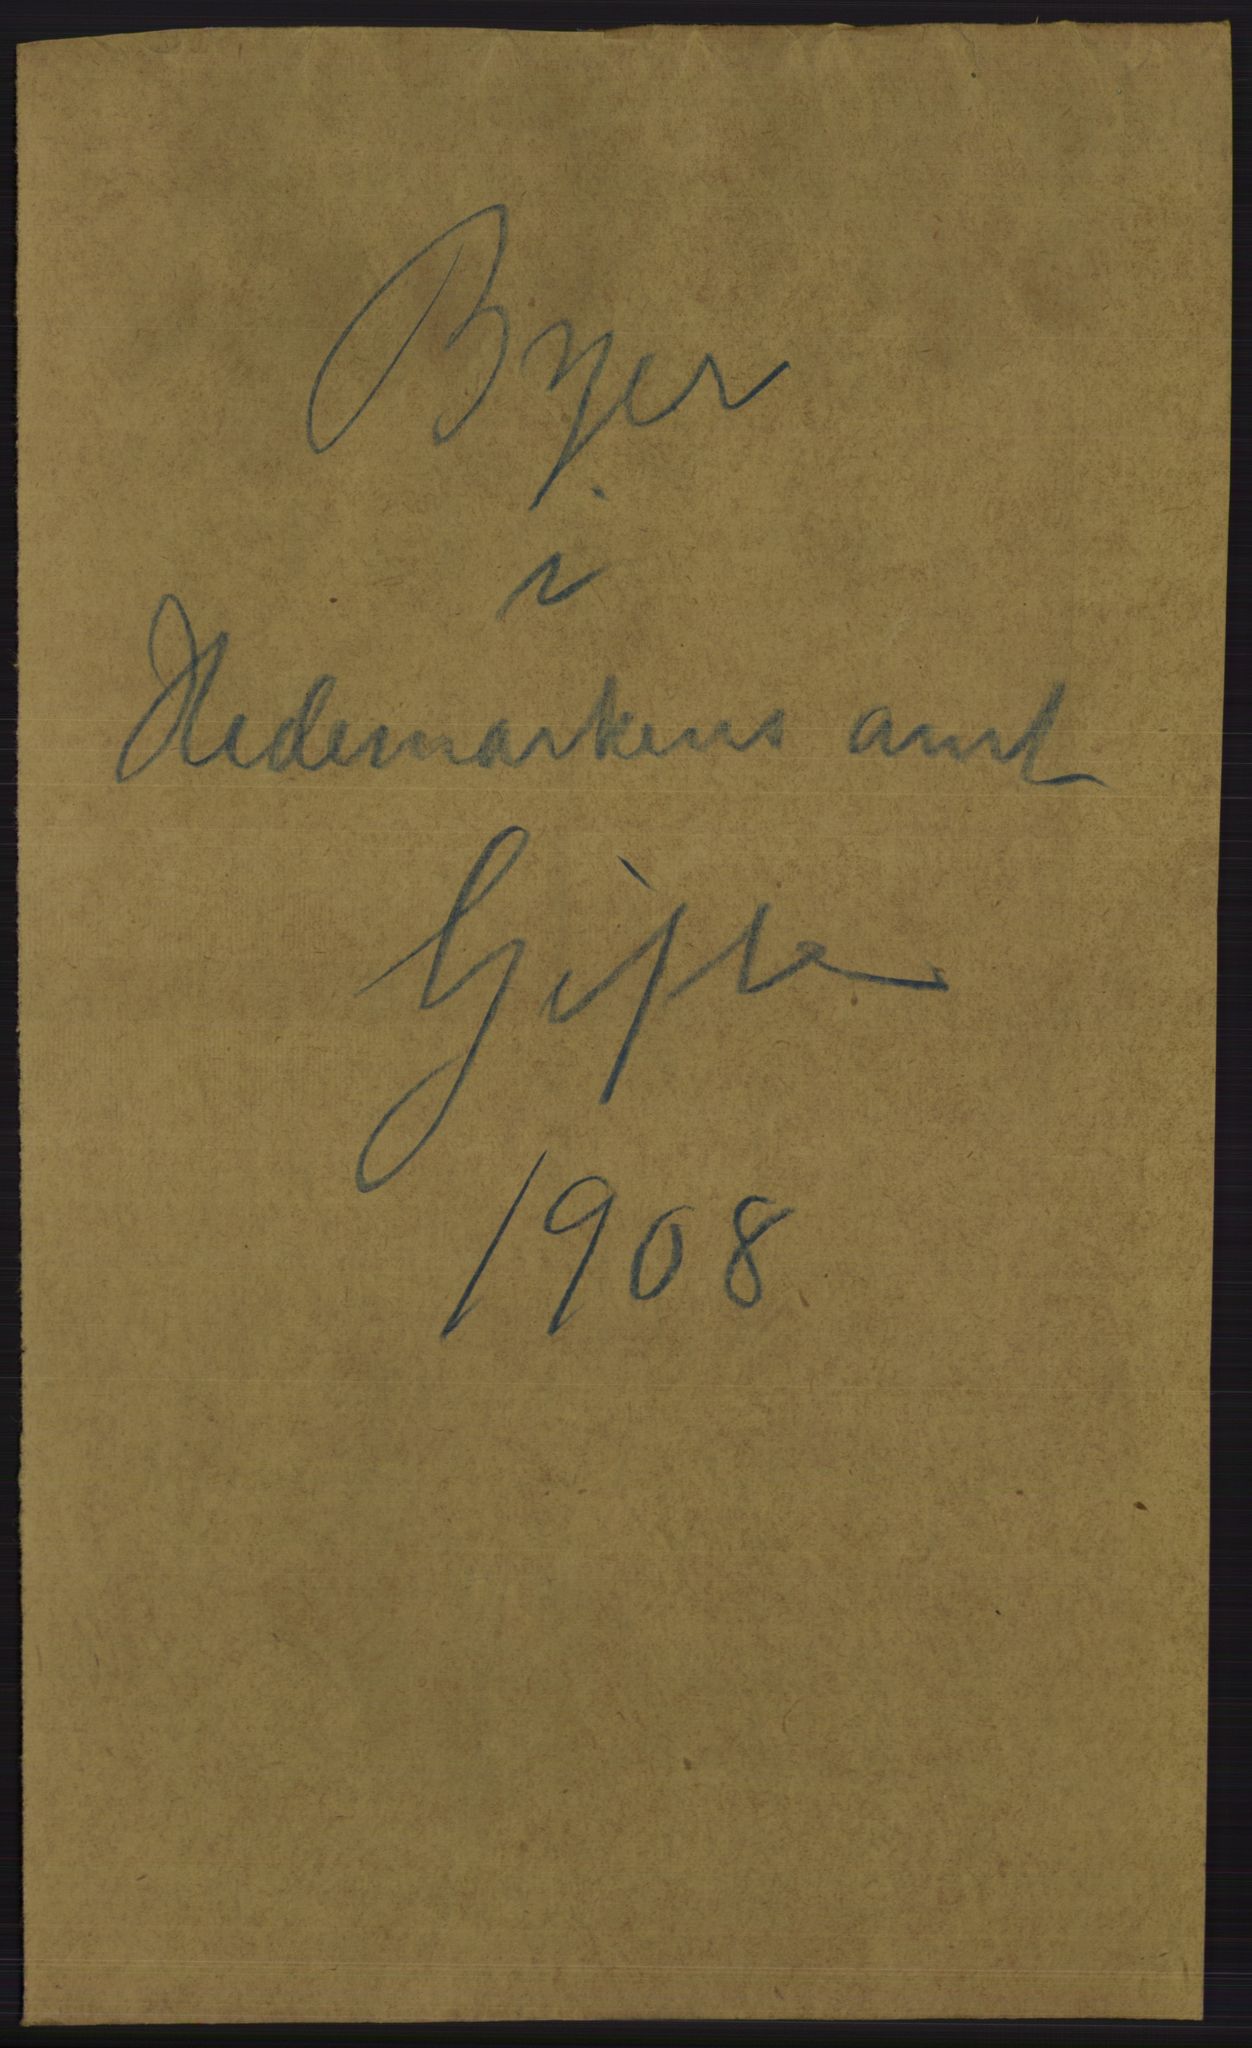 Byer
i
Hedemarkens amt
Gifte
1908